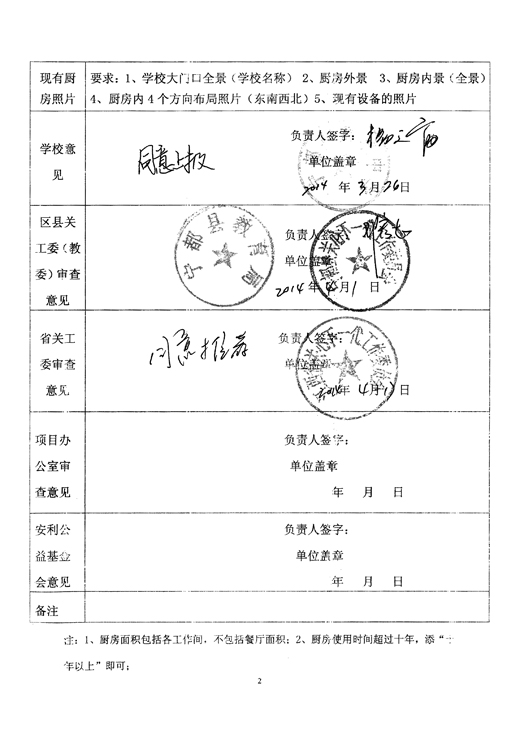 现有厨
房照片
要求：1、学校大门口全景（学校名称）2、厨房外景 3、厨房内景（全景）
4、厨房内4个方向布局照片（东南西北）5、现有设备的照片
学校意
见
同意上报
负责人签字：
单位盖章
2014 年 3 月 26 日
区县关
工委（教
委）审查
意见
宁都县教育局
负责人签字
单位盖章
2014 年 4 月 1 日
省关工
委审查
意见
同意推荐
负责人签字：
单位盖章
年 4 月 日
项目办
公室审
查意见
负责人签字：
单位盖章
年 月 日
安利公
益基金
会意见
负责人签字：
单位盖章
年 月 日
备注
注：1、厨房面积包括各工作间，不包括餐厅面积；2、厨房使用时间超过十年，添“十
年以上”即可；
2